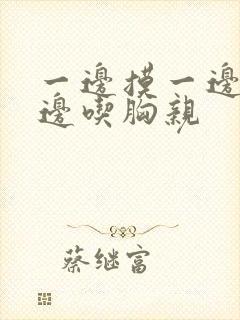 一邊摸一邊
邊喫胸親
蔡继富